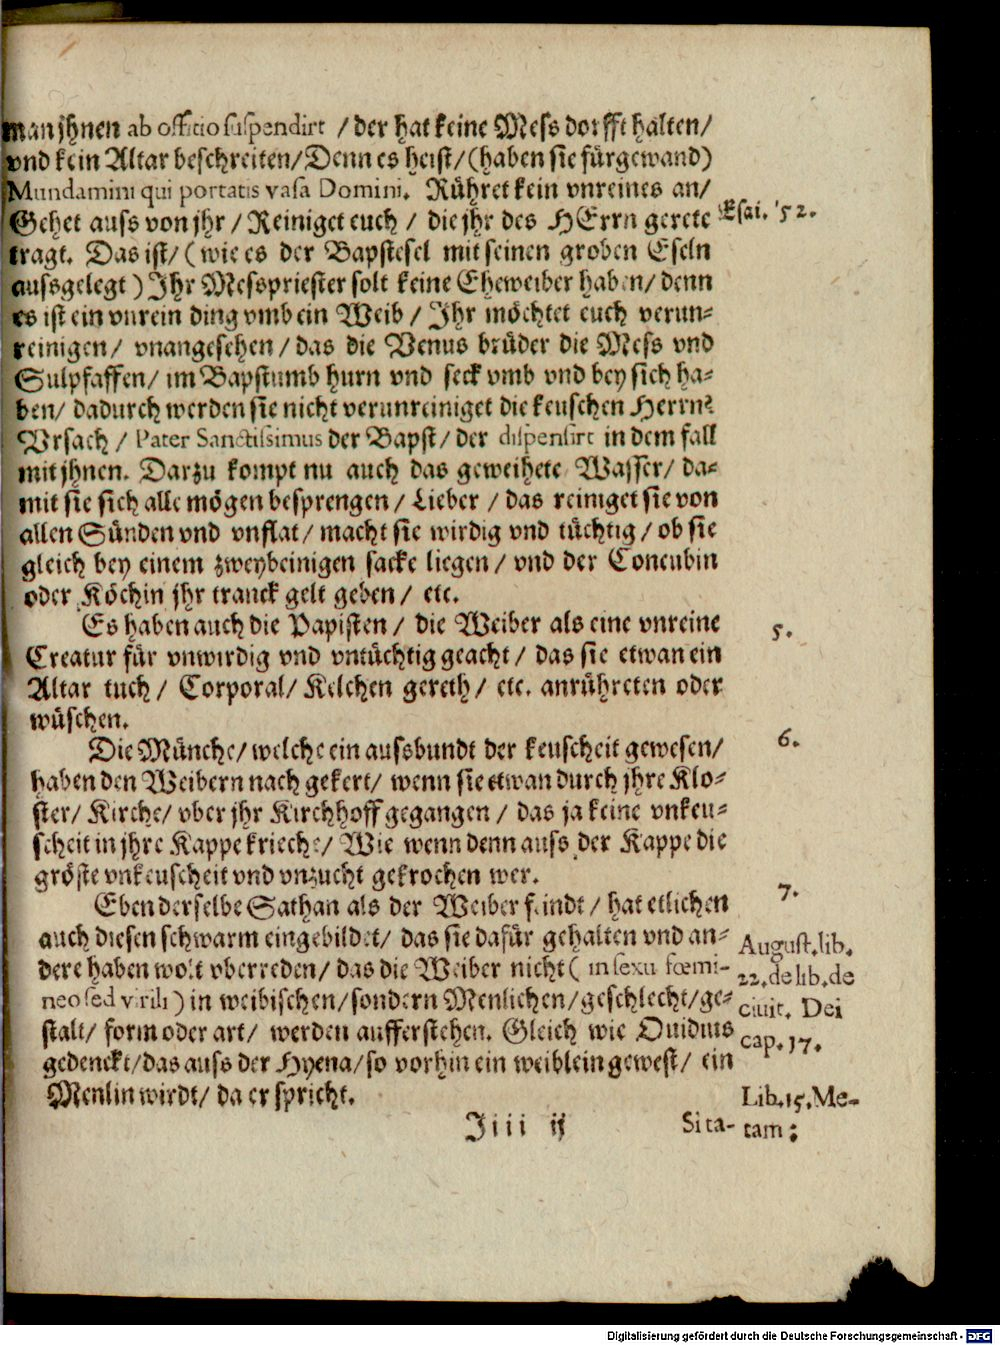 man jhnen ab officio suspendirt / der hat keine Mess dorfft halten/
vnd kein Altar beschreiten/ Denn es heist/ (haben sie fürgewand)
Mundamini qui portatis vasa Domini. Rühret kein vnreines an/
Gehet auss von jhr / Reiniget euch / die jhr des HErrn gerete
Esai. 52.
tragt. Das ist/ (wie es der Bapstesel mit seinen groben Eseln
aussgelegt) Jhr Messpriester solt keine Eheweiber haben/ denn
es ist ein vnrein ding vmb ein Weib / Jhr möchtet euch verun-
reinigen/ vnangesehen/ das die Venus brüder die Mess vnd
Sulpfaffen/ im Bapstumb hurn vnd seck vmb vnd bey sich ha-
ben/ dadurch werden sie nicht verunreiniget die keuschen Herrn?
Vrsach / Pater Sanctissimus der Bapst/ der dispensirt in dem fall
mit jhnen. Darzu kompt nu auch das geweihete Wasser/ da-
mit sie sich alle mögen besprengen / Lieber / das reiniget sie von
allen Sünden vnd vnflat/ macht sie wirdig vnd tüchtig/ ob sie
gleich bey einem zweybeinigen sacke liegen/ vnd der Concubin
oder Köchin jhr tranck gelt geben/ etc.
Es haben auch die Papisten/ die Weiber als eine vnreine
5.
Creatur für vnwirdig vnd vntüchtig geacht/ das sie etwan ein
Altar tuch/ Corporal/ Kelchen gereth/ etc. anrühreten oder
wüschen.
Die Münche/ welche ein aussbundt der keuscheit gewesen/
6.
haben den Weibern nach gekert/ wenn sie etwan durch jhre Klo-
ster/ Kirche/ vber jhr Kirchhoff gegangen / das ja keine vnkeu-
scheit in jhre Kappe krieche/ Wie wenn denn auss der Kappe die
gröste vnkeuscheit vnd vnzucht gekrochen wer.
Eben derselbe Sathan als der Weiber feindt/ hat etlichen
7.
auch diesen schwarm eingebildet/ das sie dafür gehalten vnd an-
dere haben wolt vberreden/ das die Weiber nicht ( in sexu fœmi-
neo sed virili) in weibischen/ sondern Menlichen/ geschlecht/ ge-
stalt/ form oder art/ werden aufferstehen. Gleich wie Ouidius
gedenckt/ das auss der Hyena/ so vorhin ein weiblein gewest/ ein
Menlin wirdt/ da er spricht.
August. lib.
22. de lib. de
ciuit. Dei
cap. 17.
Lib. 15. Me-
tam:
Jiii ij
Si ta-
Digitalisierung gefördert durch die Deutsche Forschungsgemeinschaft - DFG